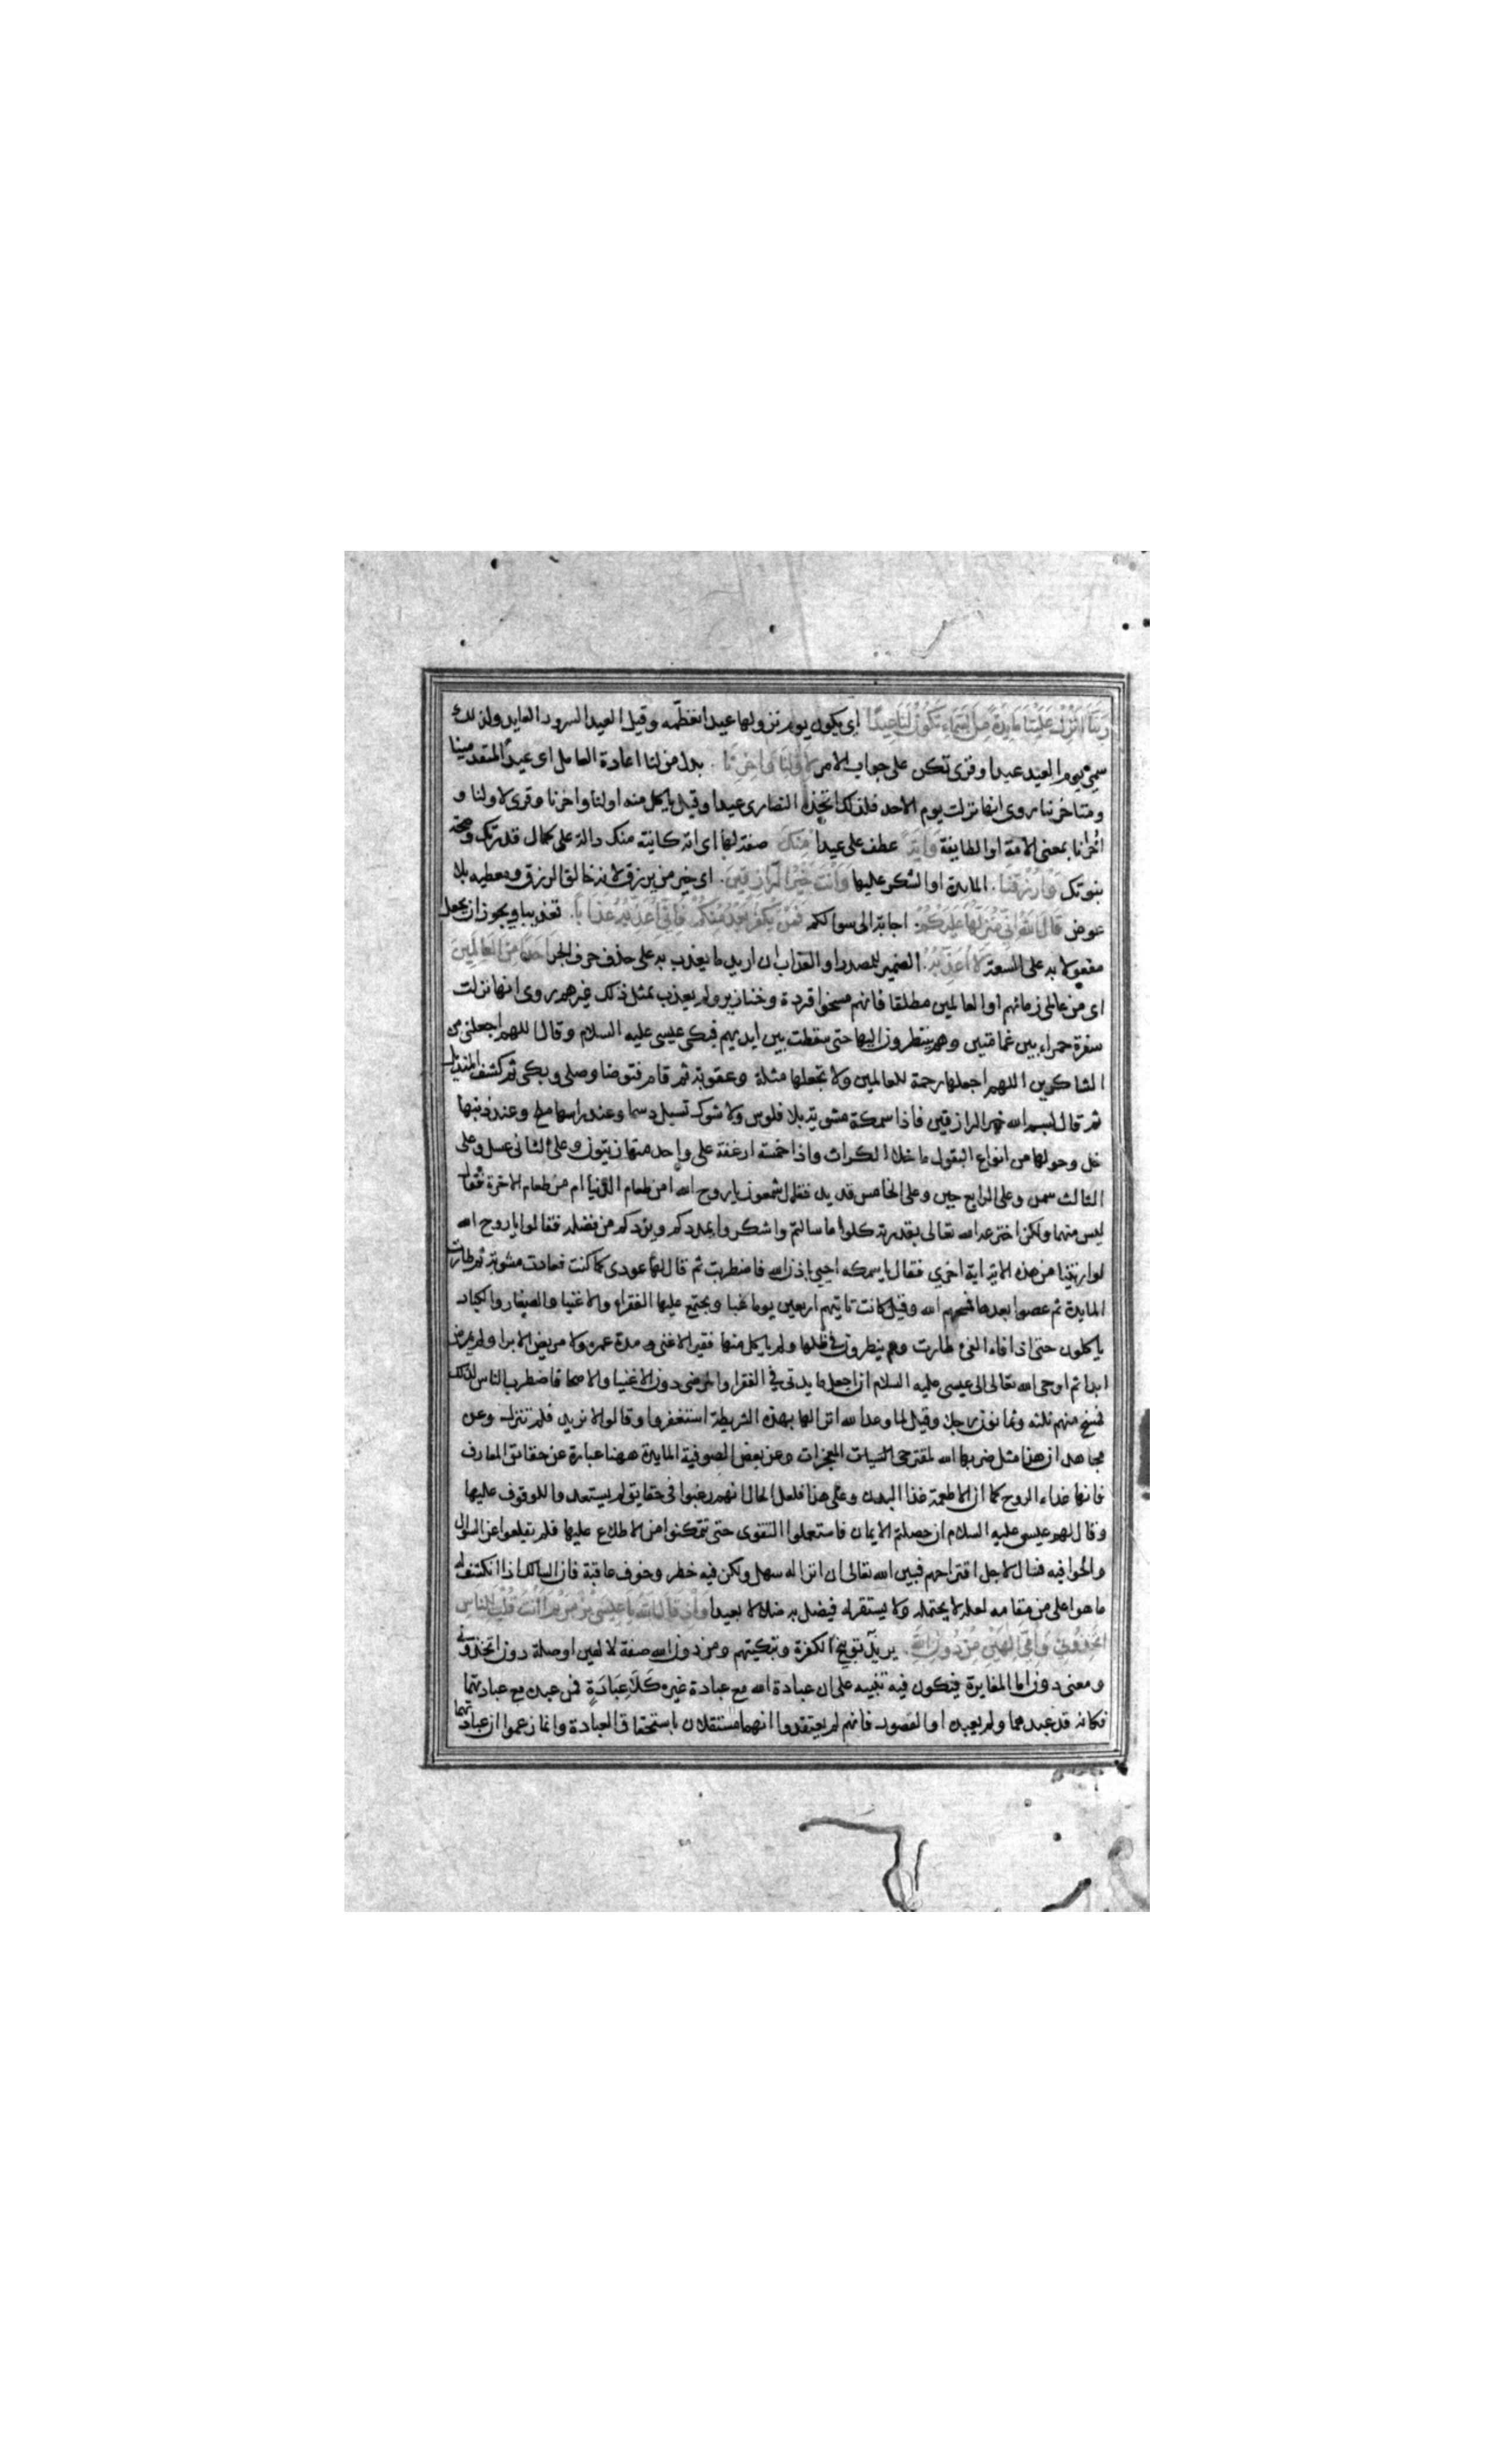 ربنا انزل علينا مايدة من السماء تكون لنا عيدا اى يكون يوم نزولها عيدا نعظمه وقيل العيد السرور العايد ولذلك
سمى يوم العيد عيدا وقرى تكن على جواب الامر لاولنا واخرنا بدل من لنا اعادة العامل اى عيدا لمتقدمينا
ومتاخرينا روى انها نزلت يوم الاحد فلذلك اتخذه النصارى عيدا وقيل ياكل منه اولنا واخرنا وقرى لاولنا و
اخرانا بمعنى الامة او الطايفة واية عطف على عيدا منك صفة لها اى اية كاينة منك دالة على كمال قدرتك وصحة
نبوتك وارزقنا المايدة او الشكر عليها وانت خير الرازقين اى خير من يرزق لانه خالق الرزق ومعطيه بلا
عوض قال الله انى منزلها عليكم اجابة الى سوالكم فمن يكفر بعد منكم فانى اعذبه عذابا تعذيبا ويجوز ان يجعل
مفعولا به على السعة لا اعذبه الضمير للمصدر او العذاب ان اريد ما يعذب به على حذف حرف الجر احدا من العالمين
اى من عالمى زمانهم او العالمين مطلقا فانهم مسخوا قردة وخنازير ولم يعذب بمثل ذلك غيرهم روى انها نزلت
سفرة حمراء بين غمامتين وهم ينظرون اليها حتى سقطت بين ايديهم فبكى عيسى عليه السلام وقال اللهم اجعلنى من
الشاكرين اللهم اجعلها رحمة للعالمين ولا تجعلها مثلة وعقوبة ثم قام فتوضا وصلى وبكى ثم كشف المنديل
ثم قال بسم الله خير الرازقين فاذا سمكة مشوية بلا فلوس ولا شوك تسيل دسما وعند راسها ملح وعند ذنبها
خل وحولها من انواع البقول ما خلا الكراث واذا خمسة ارغفة على واحد منها زيتون وعلى الثانى عسل وعلى
الثالث سمن وعلى الرابع جبن وعلى الخامس قديد فقال شمعون يا روح الله امن طعام الدنيا ام من طعام الاخرة فقال
ليس منهما ولكن اخترعه الله تعالى بقدرته كلوا ما سالتم واشكروا يمددكم ويزدكم من فضله فقالوا يا روح الله
لو اريتنا من هذه الاية اية اخرى فقال يا سمكه احيى باذن الله فاضطربت ثم قال لها عودى كما كنت فعادت مشوية ثم طارت
المايدة ثم عصوا بعدها فمسخهم الله وقيل كانت تاتيهم اربعين يوما غبا ويجتمع عليها الفقراء والاغنيا والصغار والكبار
ياكلون حتى اذا فاء الفئ طارت وهم ينظرون فى ظلها ولم ياكل منها فقير الا غنى مدة عمره ولا مريض الا برا ولم يمرض
ابدا ثم اوحى الله تعالى الى عيسى عليه السلام ان اجعل مايدتى فى الفقرا والمرضى دون الاغنيا والاصحا فاضطرب الناس لذلك
فمسخ منهم ثلثه وثمانون رجلا وقيل لما وعد الله انزالها بهذه الشريطة استغفروا وقالوا لا نريد فلم تنزل وعن
مجاهد ان هذا مثل ضربها الله لمقترحى المعجزات وعن بعض الصوفية المايدة ههنا عبارة عن حقائق المعارف
فانها غذاء الروح كما ان الاطعمة غذا البدن وعلى هذا فلعل الحال انهم رغبوا فى حقايق لم يستعدوا للوقوف عليها
وقال لهم عيسى عليه السلام ان حصلتم الايمان فاستعملوا التقوى حتى تتمكنوا من الاطلاع عليها فلم يقلعوا عن السوال
والحوا فيه فسال لاجل اقتراحهم فبين الله تعالى ان انزاله سهل ولكن فيه خطر وخوف عاقبة فان السالك اذا انكشف له
ما هو اعلى من مقامه لعله لا يحتمله ولا يستقر له فيضل به ضلالا بعيدا واذ قال الله يا عيسى بن مريم اانت قلت للناس
اتخذونى وامى الهين من دون الله يريد توبيخ الكفرة وتبكيتهم ومن دون الله صفة لالهين او صلة دون اتخذونى
ومعنى دون اما المغايرة فيكون فيه تنبيه على ان عبادة الله مع عبادة غيره كلا عبادة فمن عبده مع عبادتهما
فكانه قد عبدهما ولم يعبده او القصور فانهم لم يعتقدوا انهما مستقلان باستحقاق العبادة وانما زعموا ان عبادتهما